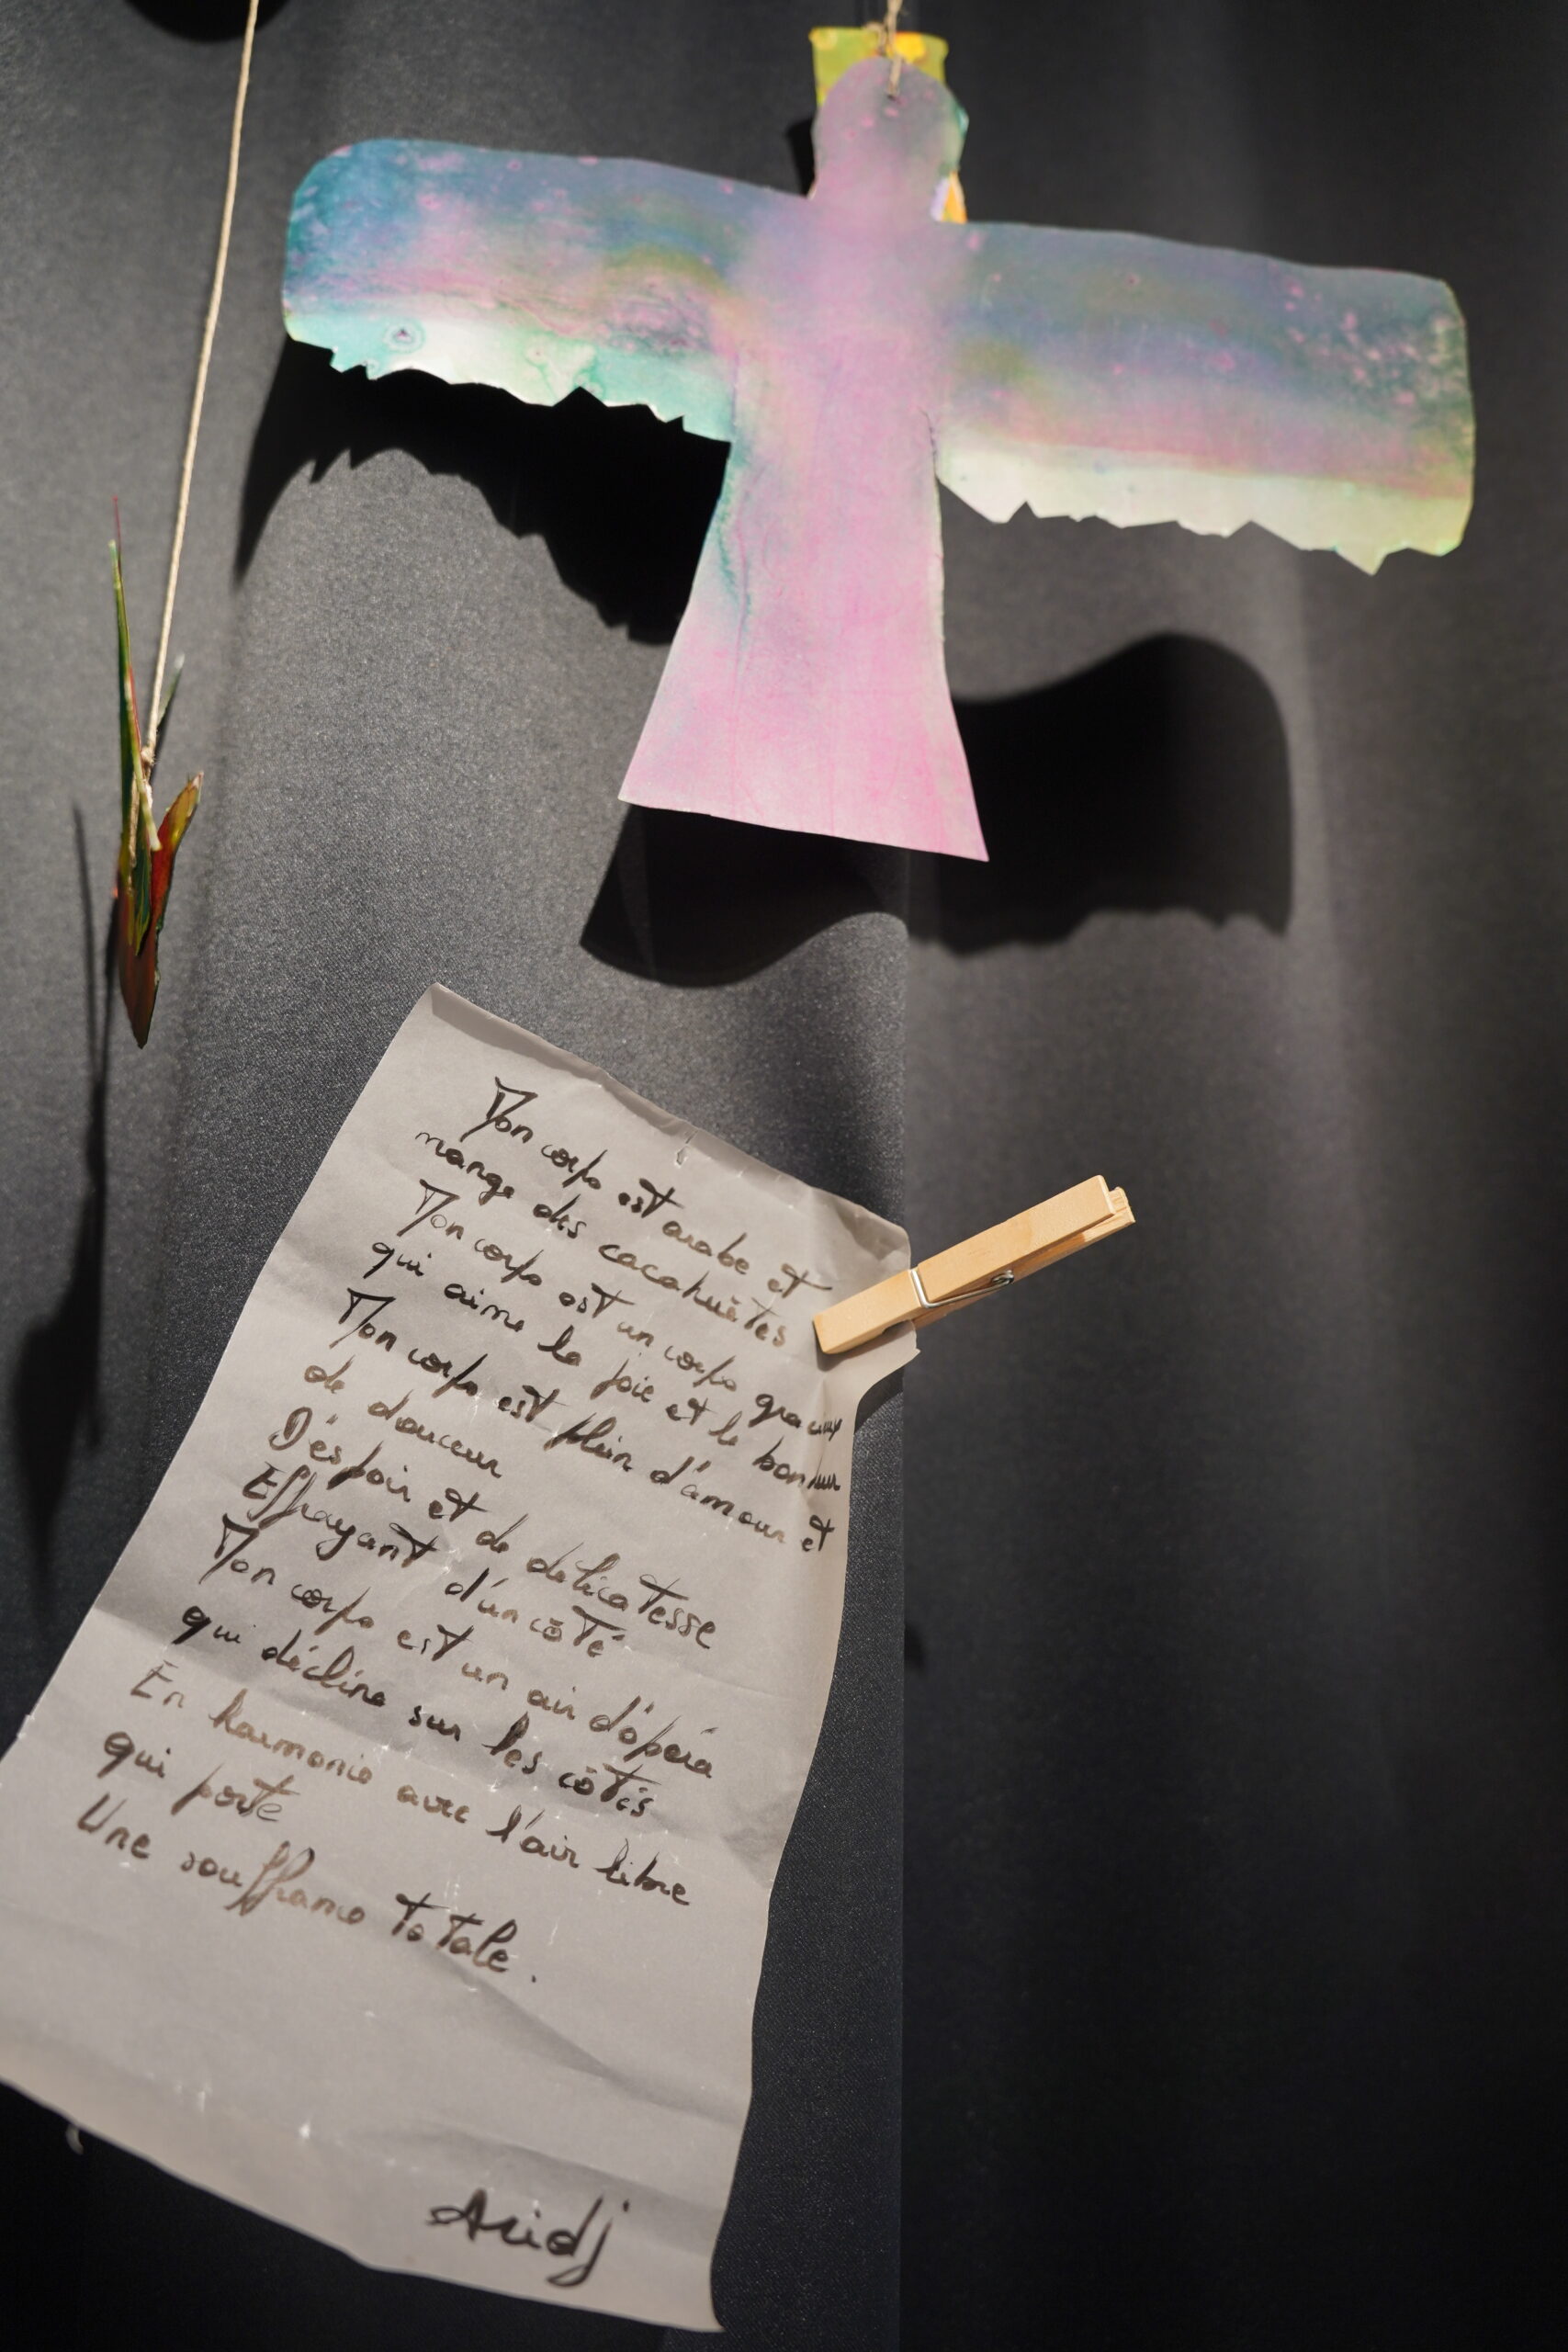 Mon corps est arabe et
mange des cacahuètes
Mon corps est un corps gracieux
qui aime la joie et le bonheur
Mon corps est plein d'amour et
de douceur
D'espoir et de délicatesse
Effrayant d'un côté
Mon corps est un air d'opéra
qui décline sur les côtés
En harmonie avec l'air libre
qui porte
Une souffrance totale.
Aridj